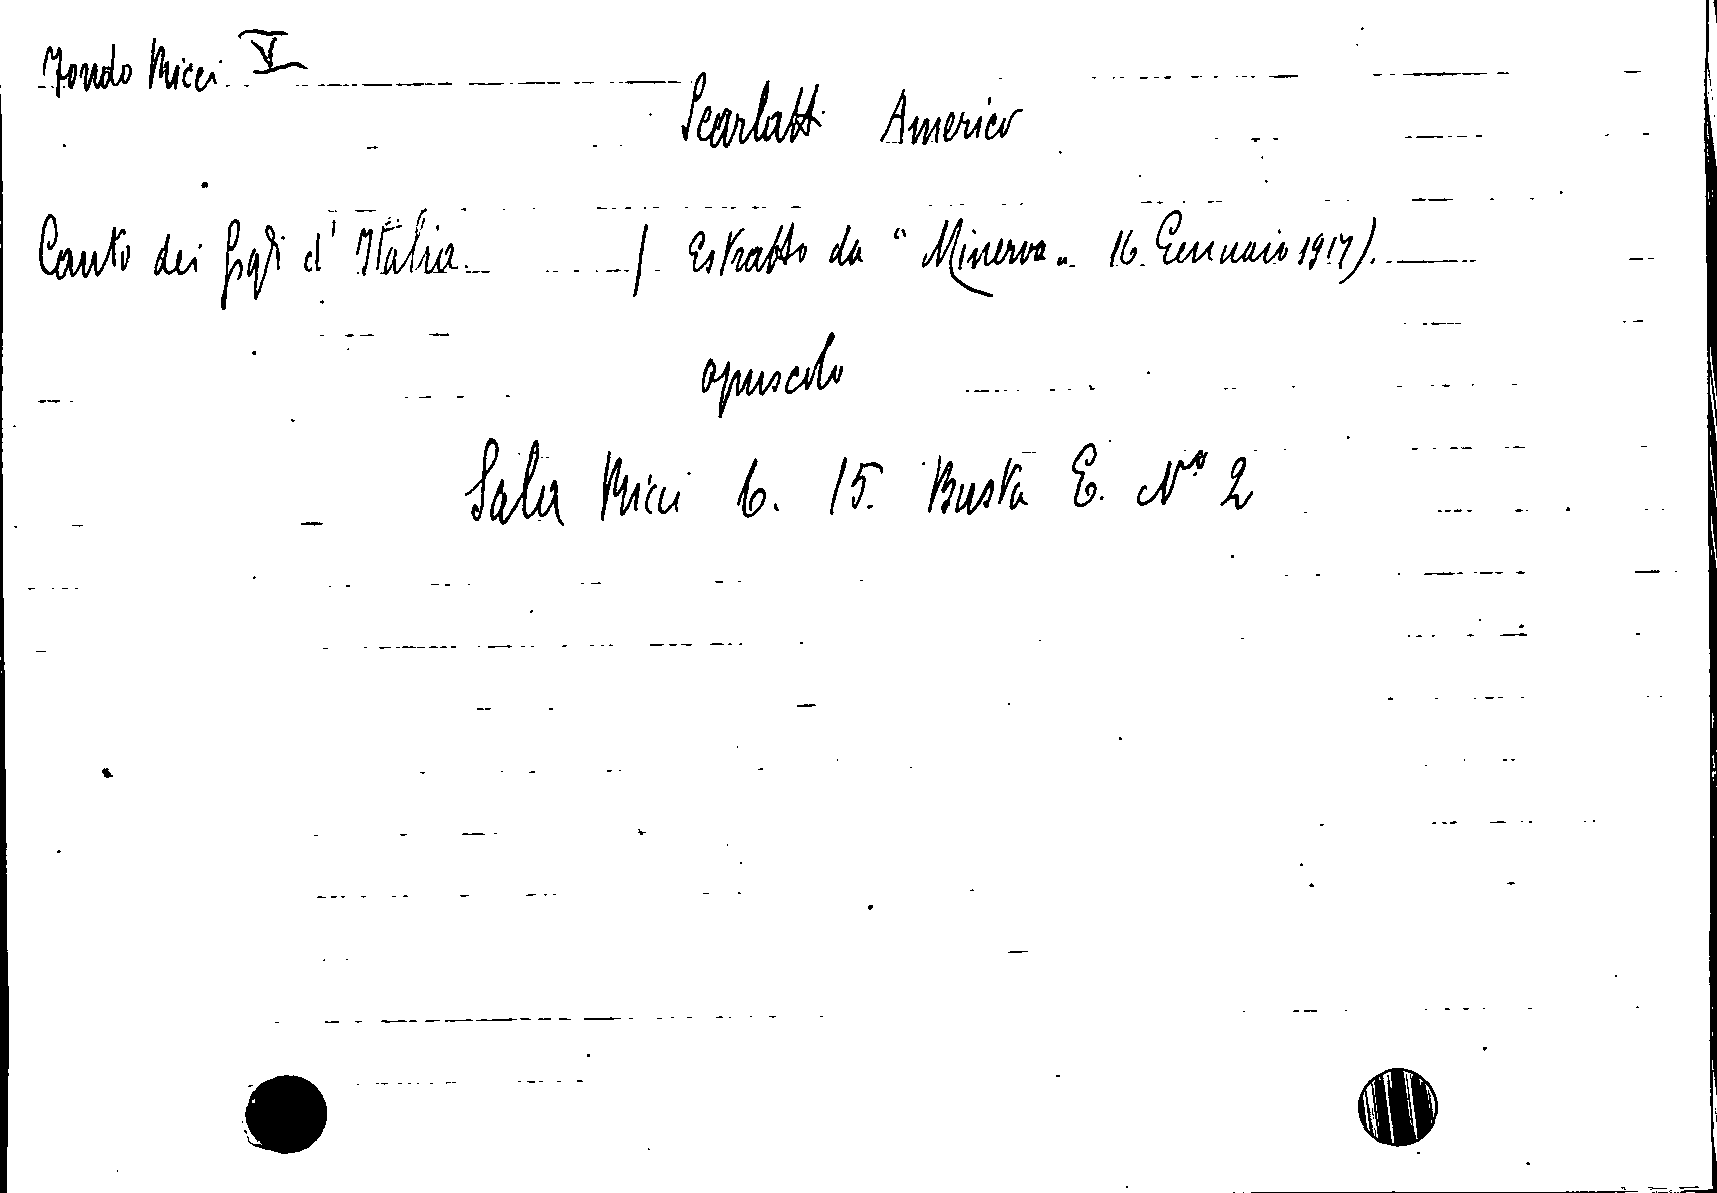 Fondo Ricci V
Scarlatti Americo
Canto dei figli d'Italia / Estratto da "Minerva" 16 Gennaio 1917).
opuscolo
Sala Ricci 6. 15. Busta E. N° 2